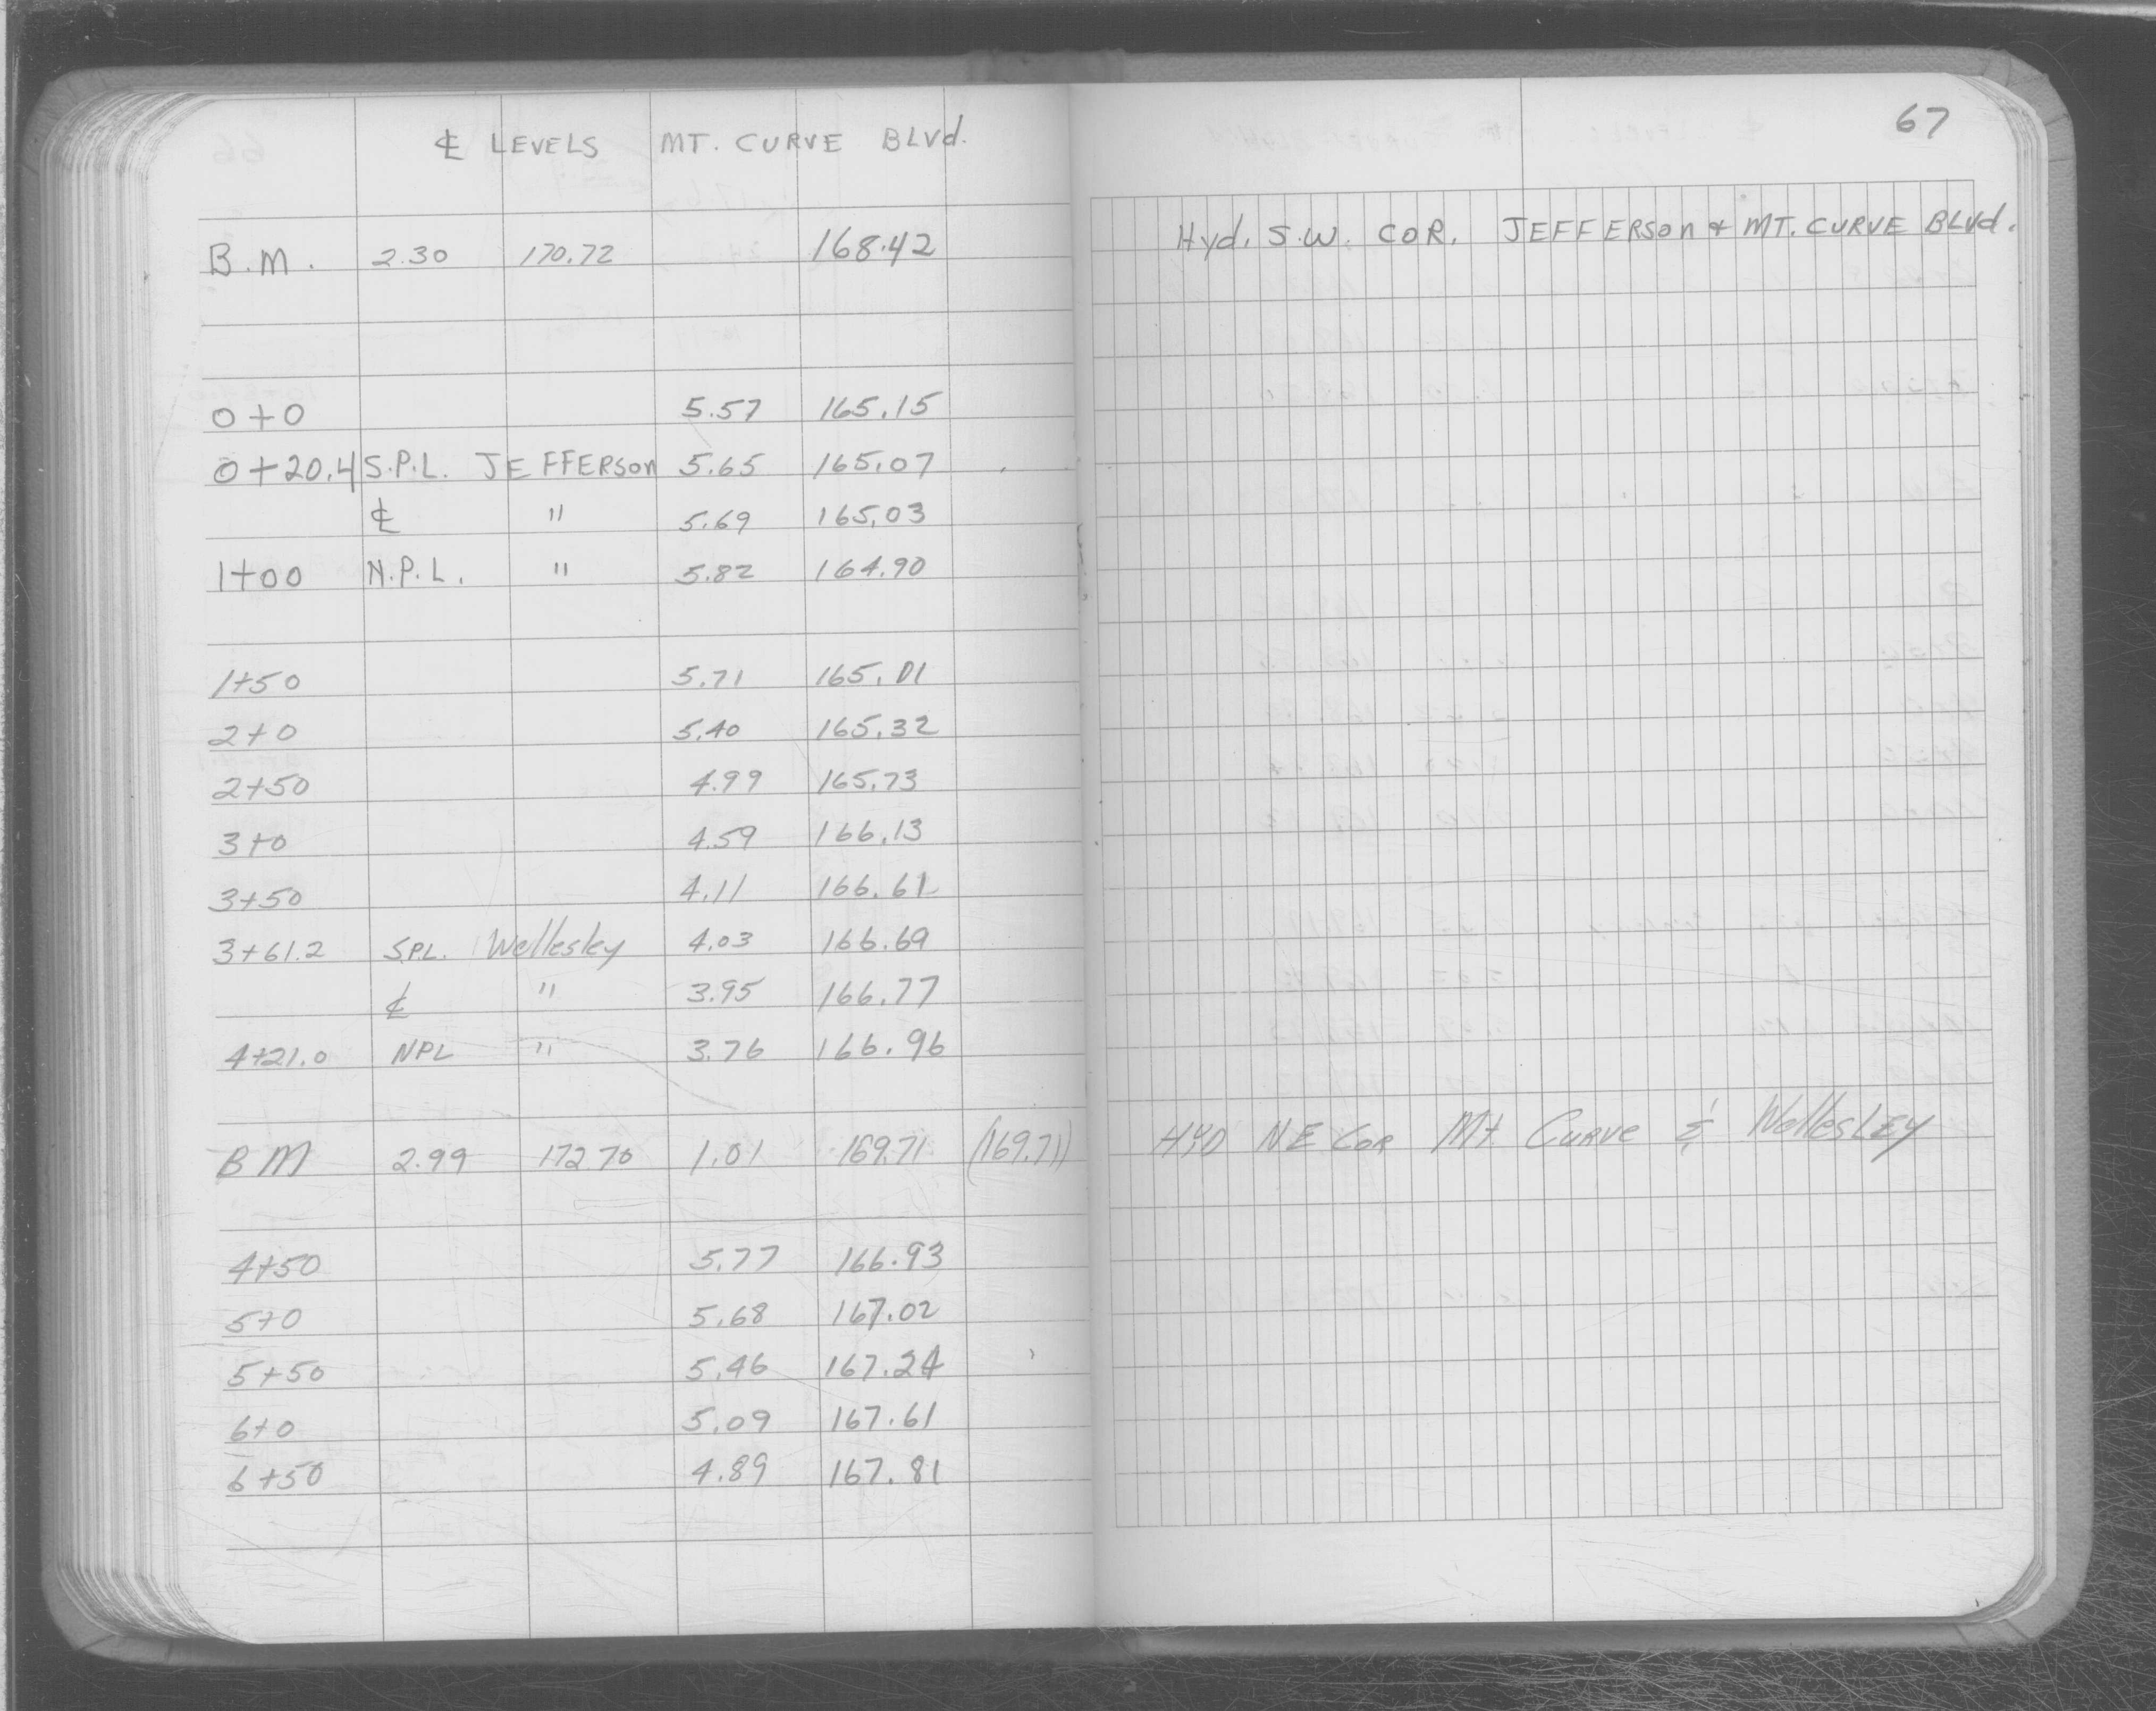 ℄ LEVELS MT. CURVE BLVd.
67
B.M. 2.30 170.72 168.42 Hyd. S.W. COR. JEFFERSON & MT. CURVE BLVd.
0+0 5.57 165.15
0+20.4 S.P.L. JEFFERSON 5.65 165.07
℄ " 5.69 165.03
1+00 N.P.L. " 5.82 164.90
1+50 5.71 165.01
2+0 5.40 165.32
2+50 4.99 165.73
3+0 4.59 166.13
3+50 4.11 166.61
3+61.2 S.P.L. Wellesley 4.03 166.69
℄ " 3.95 166.77
4+21.0 NPL " 3.76 166.96
BM 2.99 172.70 1.01 169.71 (169.71) HYD NE COR Mt Curve & Wellesley
4+50 5.77 166.93
5+0 5.68 167.02
5+50 5.46 167.24
6+0 5.09 167.61
6+50 4.89 167.81